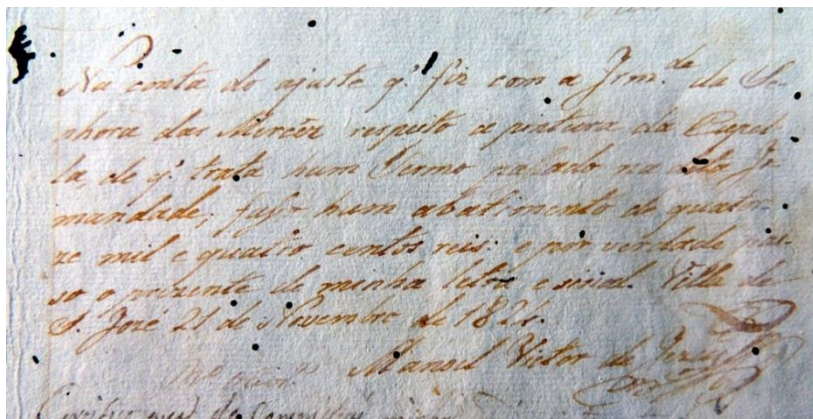 Na conta do ajuste q.' fiz com a Irm.de da Se-
nhora das Mercêz respeito a pintura da Capel-
la, de q.' trata hum Termo pasado na dita Ir-
mandade, fasso hum abatimento de quator-
ze mil e quatro centos reis: e por verdade pas-
so o prezente de minha letra e sinal. Villa de
S. José 21 de Novembro de 1824.
Manoel Victor de Jezus